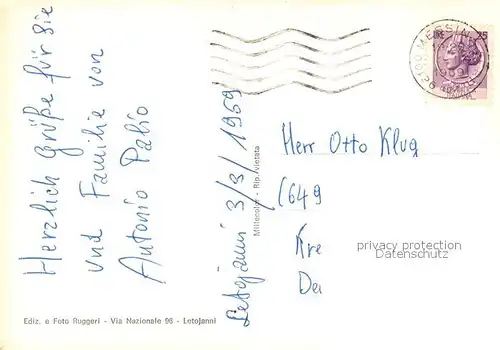 Herzlich grüße für Sie
und Familie von
Antonio Pabio
Letojanni 3/3/1969
Millecolor - Rip. vietata
Herr Otto Klug
(649
Kre
De
privacy protection
Datenschutz
Ediz. e Foto Ruggeri - Via Nazionale 96 - Letojanni
MESSINA
25